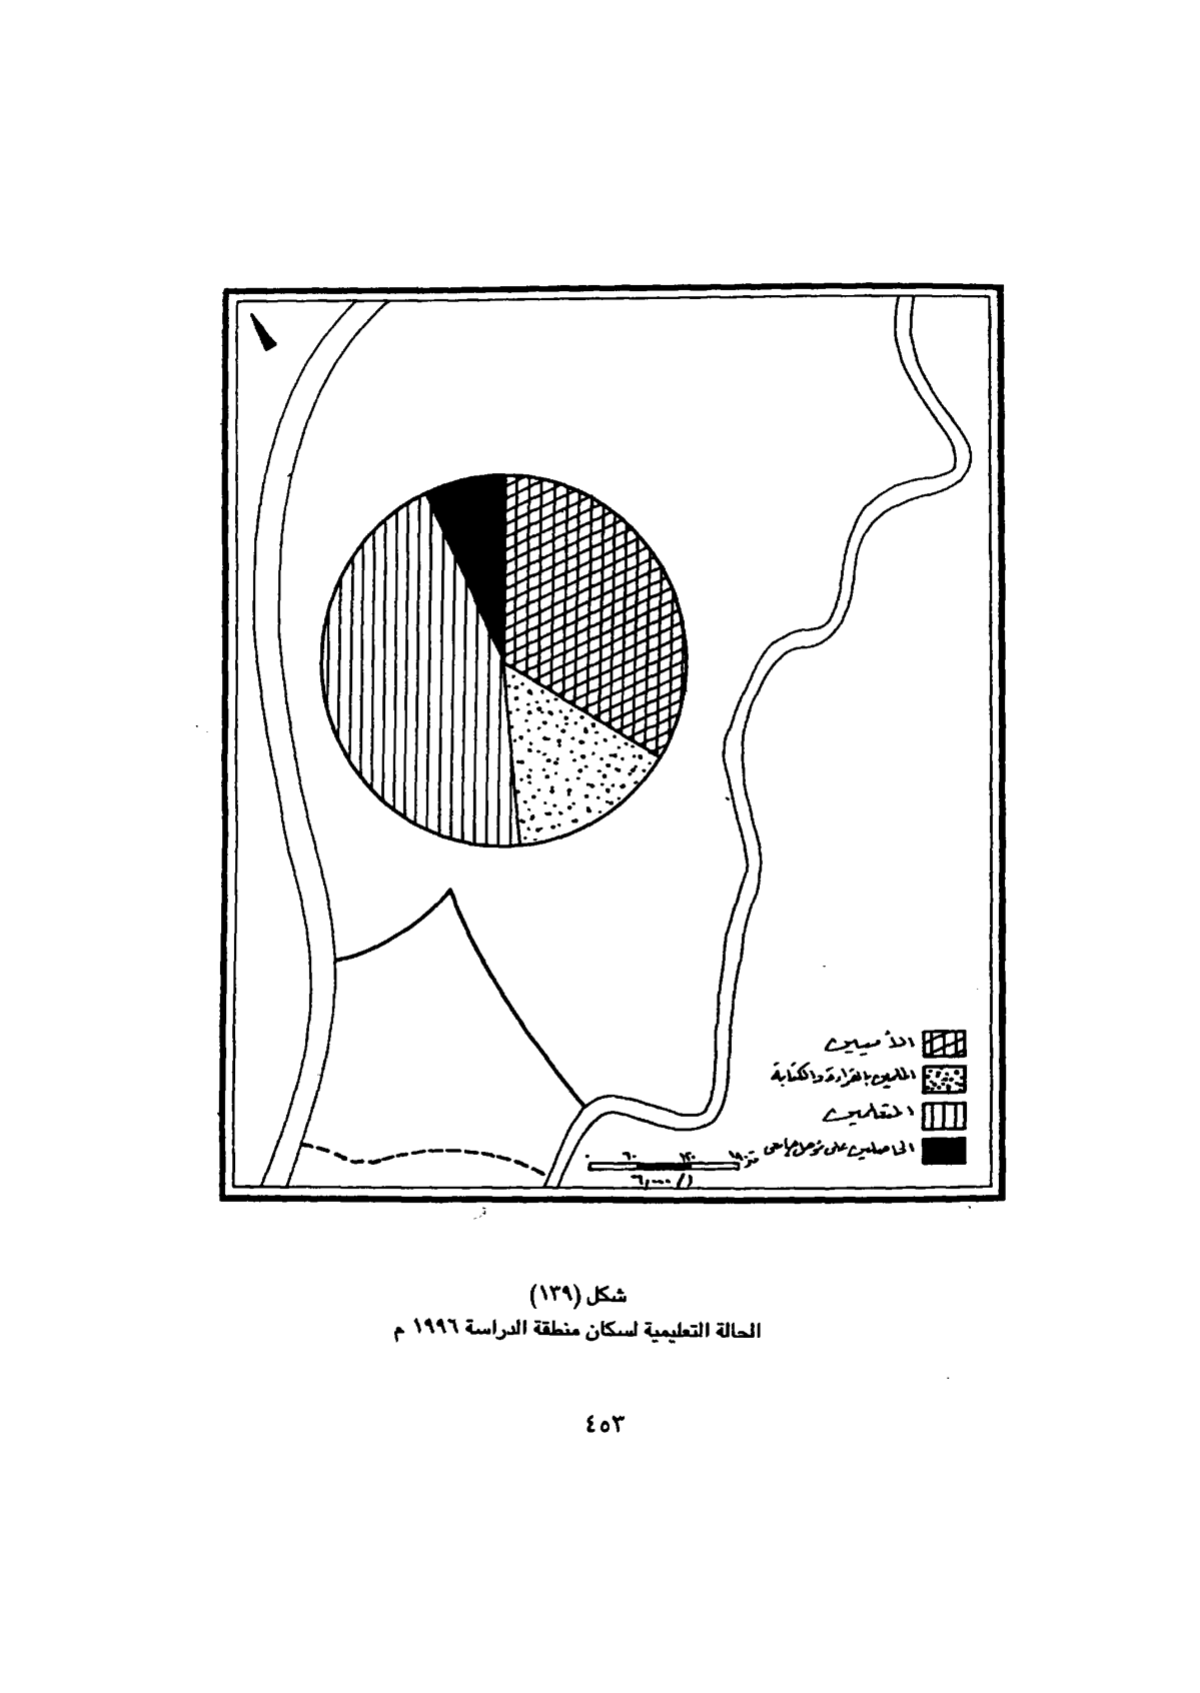 الأميين
الملمين بالقراءة والكتابة
المتعلمين
الحاصلين على مؤهل جامعى
٠ ٦٠ ١٢٠ ١٨٠ متر
١/٦٠٠٠
شكل (١٣٩)
الحالة التعليمية لسكان منطقة الدراسة ١٩٩٦ م
٤٥٣